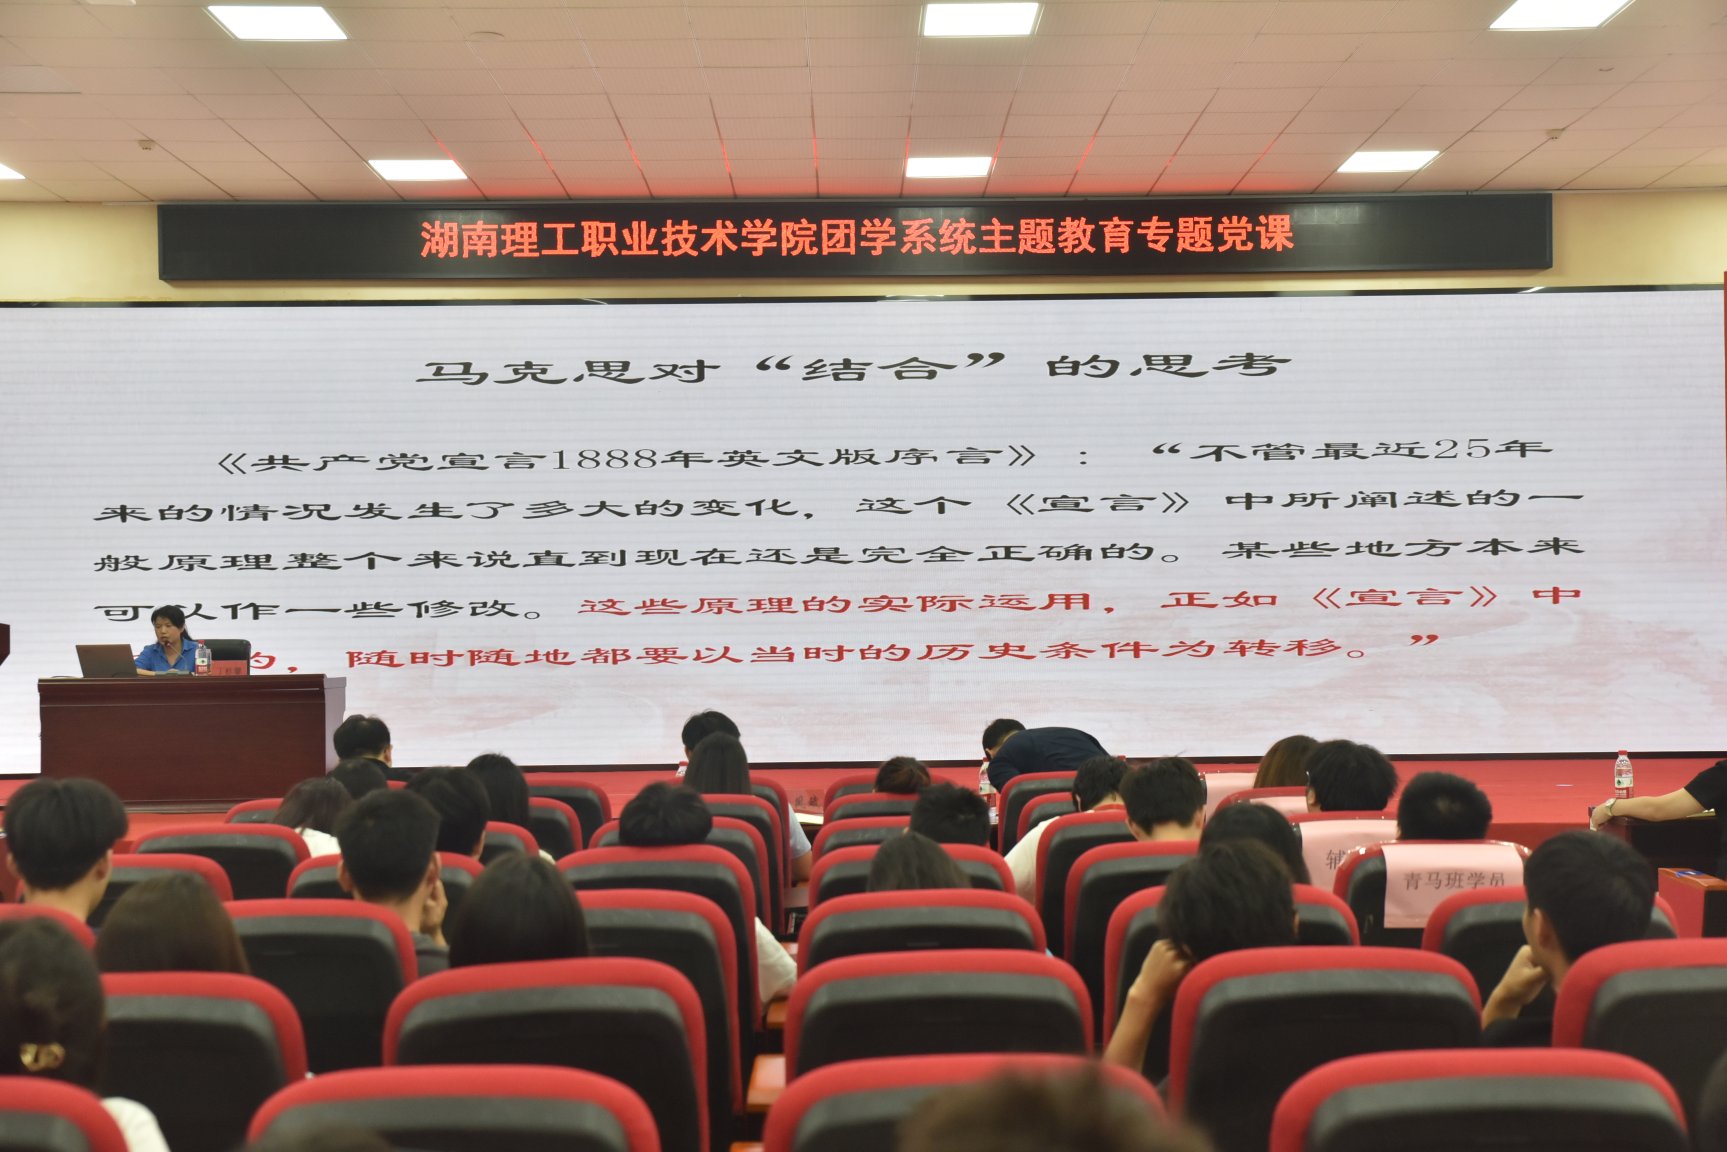 湖南理工职业技术学院团学系统主题教育专题党课
马克思对“结合”的思考
《共产党宣言1888年英文版序言》：“不管最近25年
来的情况发生了多大的变化，这个《宣言》中所阐述的一
般原理整个来说直到现在还是完全正确的。某些地方本来
可以作一些修改。这些原理的实际运用，正如《宣言》中
的，随时随地都要以当时的历史条件为转移。”
辅
青马班学员